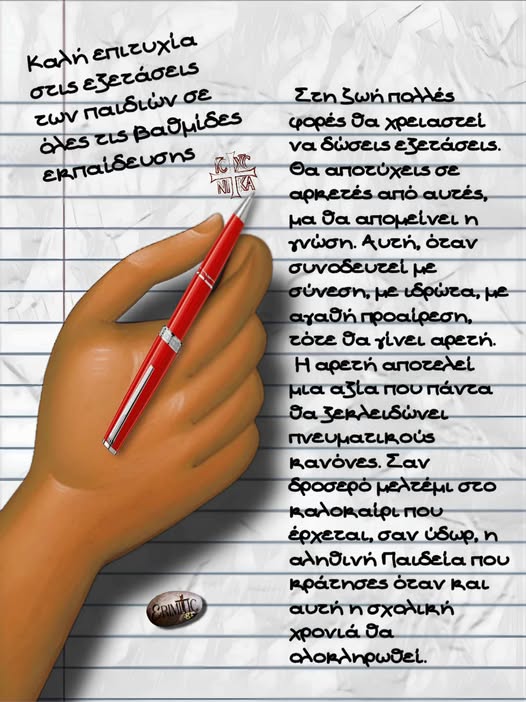 Καλή επιτυχία
στις εξετάσεις
των παιδιών σε
όλες τις βαθμίδες
εκπαίδευσης
IC XC
NI KA
Στη ζωή πολλές
φορές θα χρειαστεί
να δώσεις εξετάσεις.
Θα αποτύχεις σε
αρκετές από αυτές,
μα θα απομείνει η
γνώση. Αυτή, όταν
συνοδευτεί με
σύνεση, με ιδρώτα, με
αγαθή προαίρεση,
τότε θα γίνει αρετή.
Η αρετή αποτελεί
μια αξία που πάντα
θα ξεκλειδώνει
πνευματικούς
κανόνες. Σαν
δροσερό μελτέμι στο
καλοκαίρι που
έρχεται, σαν ύδωρ, η
αληθινή Παιδεία που
κράτησες όταν και
αυτή η σχολική
χρονιά θα
ολοκληρωθεί.